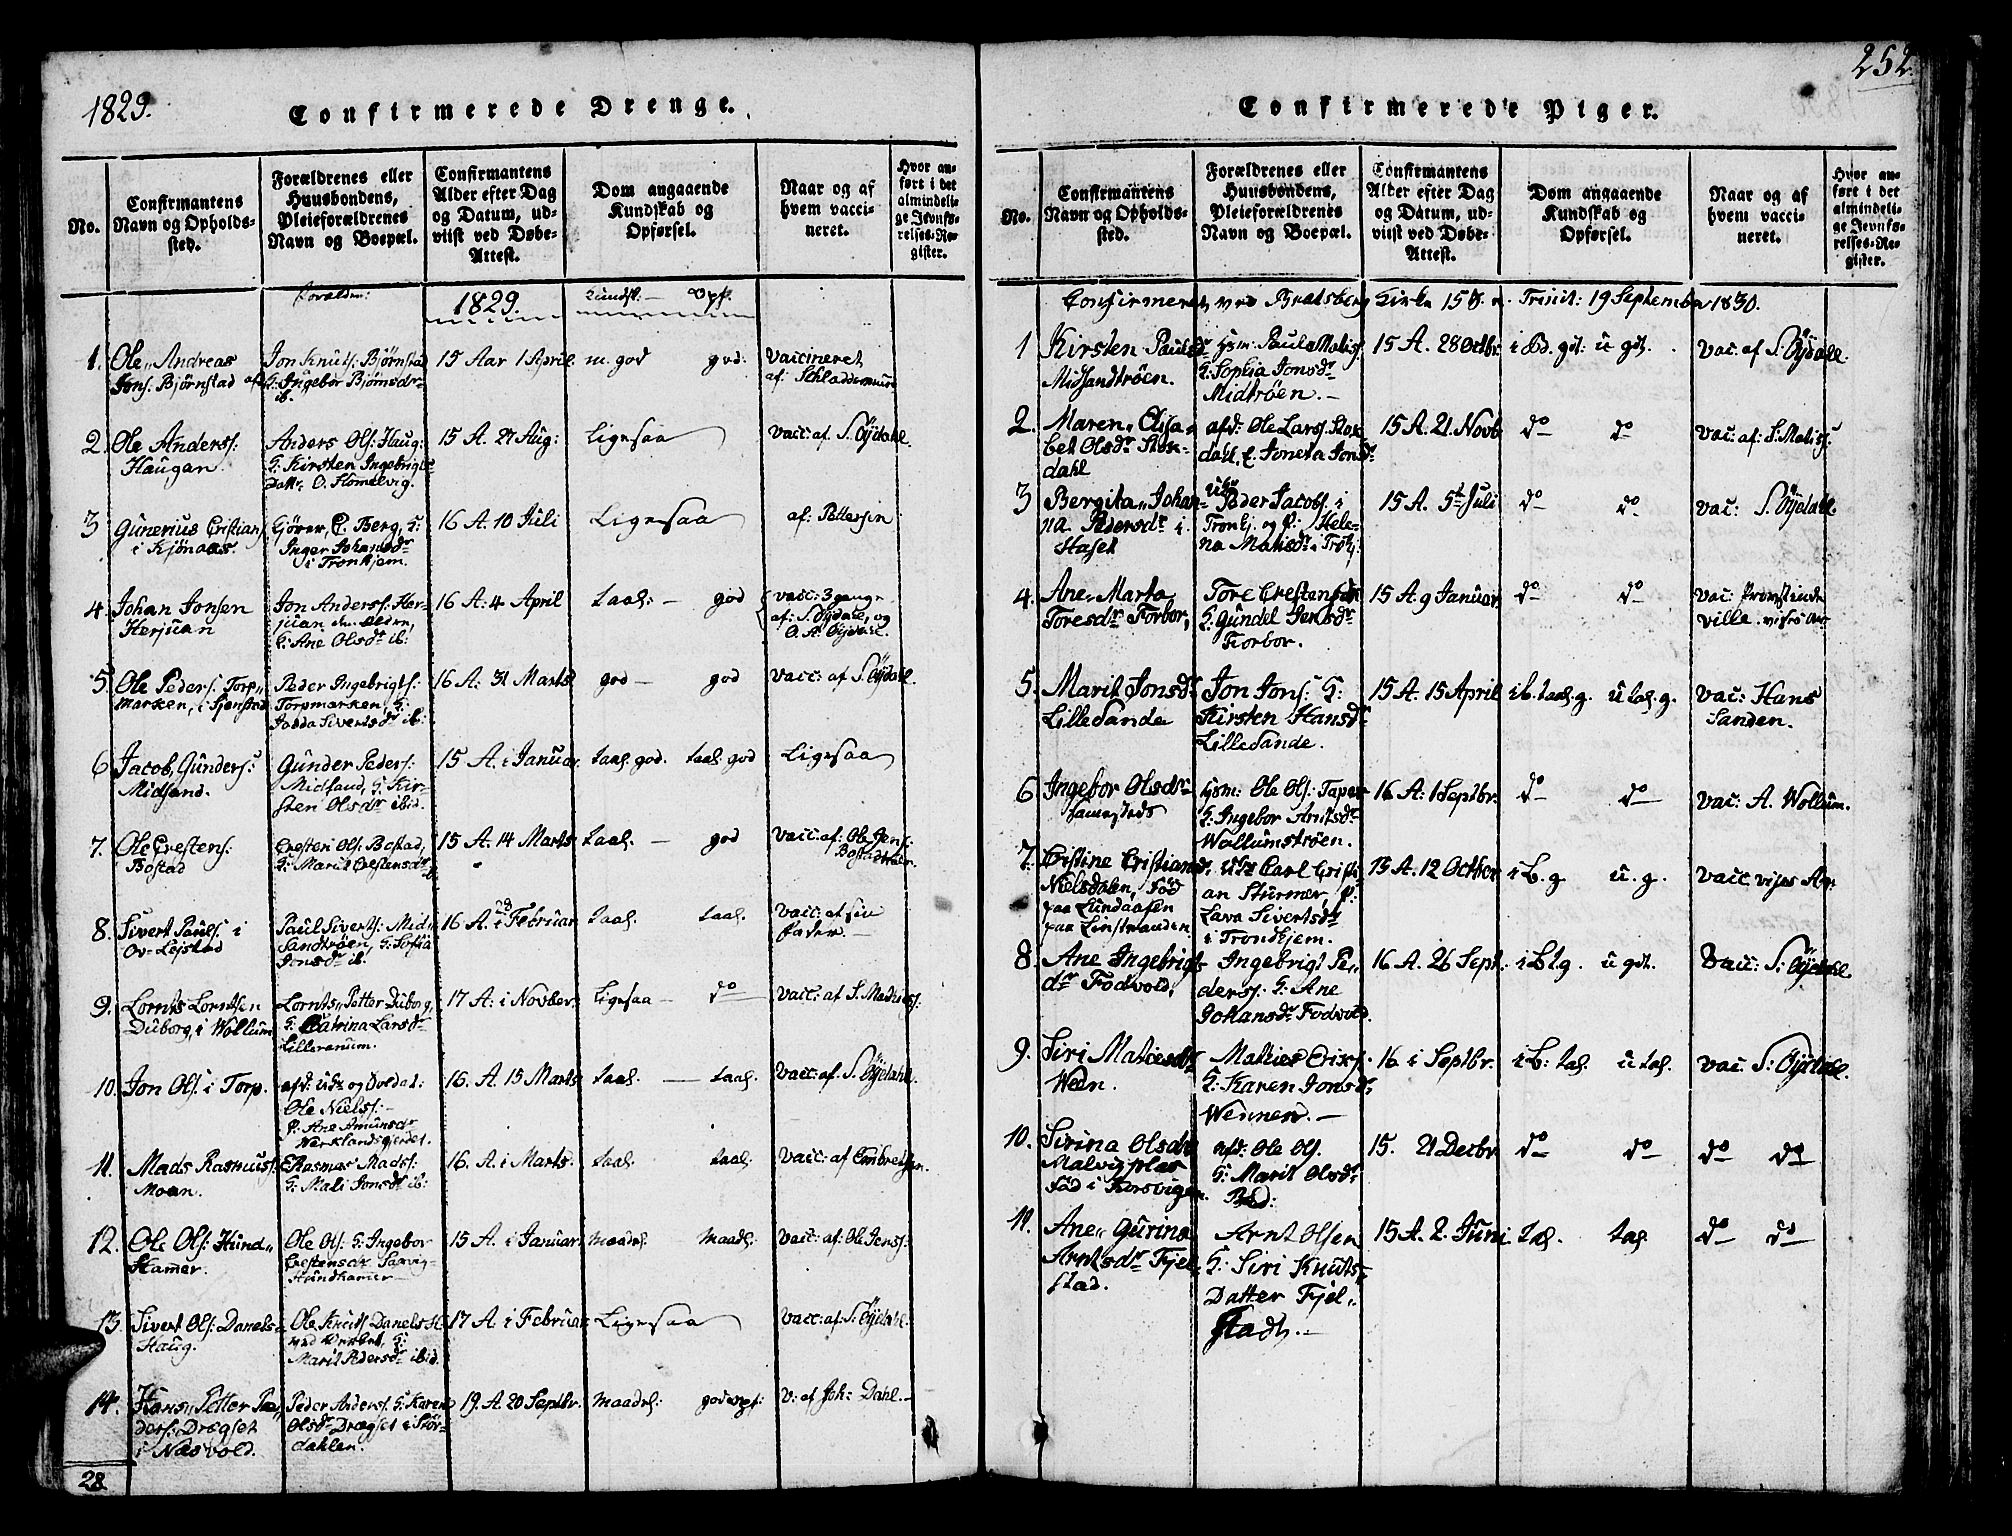 1829.
Confirmerede Drenge.
No.
Confirmantens
Navn og Opholds-
sted.
Forældrenes eller
Huusbondens,
Pleieforældrenes
Navn og Boepæl.
Confirmantens
Alder efter Dag
og Datum, ud-
viist ved Døbe-
Attest.
Dom angaaende
Kundskab og
Opførsel.
Naar og af
hvem vacci-
neret.
Hvor an-
ført i det
almindeli-
ge Jevnfø-
relses-Re-
gister.
Forældre:
1829.
Kundsk. — Opf.
1. Ole Andreas
Jons. Bjørnstad
Jon Knuts: Bjørnstad
G: Ingebor Bjørnsdr
ib.
15 Aar 1 April
m. god god:
Vaccineret
af:
2. Ole Anderss:
Haugan.
Anders Ols: Haug:
G: Kirsten Ingebrigts
Dattr, O. Homelvig.
15 A. 27 Aug:
Ligesaa
vacc: af. S. Øydahl.
3 Gunerius Cristians
i Kjønaas.
Gjører, C. Berg, G:
Inger Johansdr
i Tronhjem.
16 A. 10 Juli
Ligesaa
af: Pettersen
4. Johan Jonsen
Herjuan
Jon Anderss: Her-
juan
G: Ane Olsdr ib:
16 A: 4 April
taal: — god
vacc: 3 gange
af: S. Øydahl, og
O. A. Øydahl.
5. Ole Peders: Torp„
marken, i
Peder Ingebrigts:
Torpmarken, G:
Sivertsdr ib:
16 A: 31 Marts
god — god
Vacc: af S. Øydahl.
6 Jacob, Gunders:
Midsand.
Gunder Peders:
Midsand, G: Kir-
sten Olsdr ibid.
15 A. i Januar.
taal. god. taal god
Ligesaa
7. Ole Crestens:
Bostad
Cresten Ols: Bostad,
G: Marit Crestensdr
15 A. 14 Marts
taal. — god
Vacc: af: Ole Jens:
8. Sivert Pauls: i
Ov- Lejstad
Paul Siverts: Mid-
Sandtrøen, G: Sofia
Jonsdr ib.
16 A. 28 i Februar
taal. taal.
Vacc: af sin
Fader. —
9. Lornts Lorntsen
Duborg, i Wollum
Lornts, Petter Duborg,
G: Catrina Larsdr
Lilleranum.
17 A: i Novber:
Ligesaa — do
Vacc: af S. Mathiess:
10. Jon Ols: i Torp.
afd: udz og Soldat:
Ole Niels: —
P: Ane Amunsdr
Werklandsgjerdet.
16. A. 15 Marts
taal. — taal.
Vacc: af. S. Øydahl.
11. Mads Rasmuss:
Moan.
Rasmas Mads:
G: Mali Jonsdr ib:
16. A. i Marts.
taal. taal.
Vacc: af Embretsen.
12. Ole Ols: Hund„
Hamer.
Ole Ols: G: Ingebor
Crestensdr Saxvig-
Hundhamer —
15 A. i Januar:
maadel. maadl.
Vacc: af: Ole Jens:
13. Sivert Ols: Danels-
Haug.
Ole Knuts: Danels H.
G:
Marit Pedersdr ibid.
17 A. i Februar
Ligesaa
Vacc: af S: Øydahl.
14. Hans Petter Pe„
ders: Drægset
i Næsvold.
Peder Anders: G: Karen
Olsdr Drægset i Stør-
dahlen.
19. A. 20 Septbr.
Maadel: god opf:
V: af Joh: Dahl. —
28
252.
Confirmerede Piger.
No.
Confirmantens
Navn og Opholds-
sted.
Forældrenes eller
Huusbondens,
Pleieforældrenes
Navn og Boepæl.
Confirmantens
Alder efter Dag
og Datum, ud-
viist ved Døbe-
Attest.
Dom angaaende
Kundskab og
Opførsel.
Naar og af
hvem vacci-
neret.
Hvor an-
ført i det
almindeli-
ge Jevnfø-
relses-Re-
gister.
Confirmeret, ved Bratsberg Kirke 15 S. e. Trinit: 19 September 1830.
1 Kirsten Paulsdr
Midsandtrøen.
Hsm: Paul Matiss
G: Sophia Jonsdr
Midtrøen. —
15 A. 28 Octbr
i Bd. gdt: u gdt.
Vac. af S. Øydahl.
2. Maren„ Elisa-
bet Olsdr Stok-
dahl
afd: Ole Larss: Stok
dahl, E. Joneta Jonsdr
15 A. 21. Novb
do do
Vac: af: S. Matiss:
3 Bergita„ Johan-
na Pedersdr i
Haset
Udz Peder Jacobs: i
Tronhj. og P: Hele-
na Matisdr i Trohj:
15 A. 5te Juli
do do
vac: S. Øydahl.
4. Ane„ Marta
Toresdr Forbor,
Tore Crestens
G: Gundel Jensdr
Forbor.
15 A. 9 Januar
do do
vac:
ville.
5. Marit Jonsdr
LilleSande
Jon Jons: G:
Kirsten Hansdr
LilleSande.
15 A. 15 April
i B. taal. g. u tal. g.
vac: Hans
Sanden.
6 Ingebor Olsdr
sammesteds
Hsm: Ole Ols: Taper
G: Ingebor Arntsdr
Wollumstrøen.
16 A: 1 Septbr.
do do
vac: A. Wollum.
7. Cristine Cristiansd.
Nielsdalen, Fød
paa Lundaasen
paa
Udz Carl Cristi
an Sturmer, P:
Lava Sivertsdr
i Trondhjem.
15 A. 12 Octber
i B. g u. g.
vacc.
8. Ane Ingebrigt-
dr Fodvold,
Ingebrigt Pe„
derss. G: Ane
Johansdr Fodvold.
16 A. 26 Sept.
i B t.g. u gdt.
Vacc: S: Øydahl.
9. Siri Matiesdr
Wen.
Mathies Erics:
G: Karen Jonsdr
Wennen. —
16 i Septbr.
i B: tal. u tal.
vac. S: Øydahl.
10. Sirina Olsdr
Malvigplas
Fød i Korsvigen
afd: Ole Ols.
G: Marit Olsdr
15. 21 Decbr
do do
do do
11. Ane„ Gurina
Arntsdr Fjel-
stad.
Arnt Olsen
G: Siri Knuts-
Datter Fjel„
stad. —
15 A. 2. Juni
tal. tal.
do do